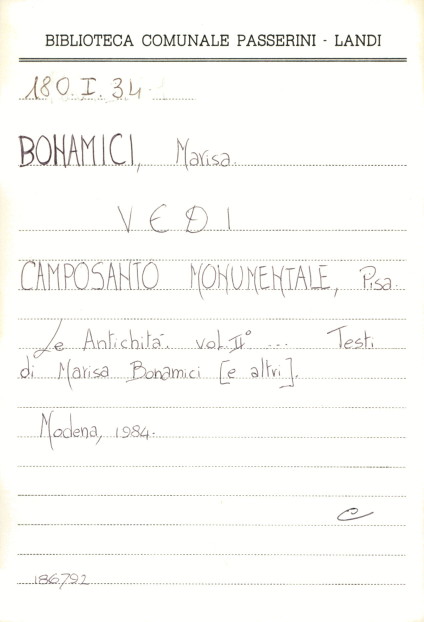 BIBLIOTECA COMUNALE PASSERINI - LANDI
180.I.34
BONAMICI, Marisa.
VEDI
CAMPOSANTO MONUMENTALE, Pisa.
Le Antichità. vol. II° ... Testi
di Marisa Bonamici [e altri].
Modena, 1984.
C
186792